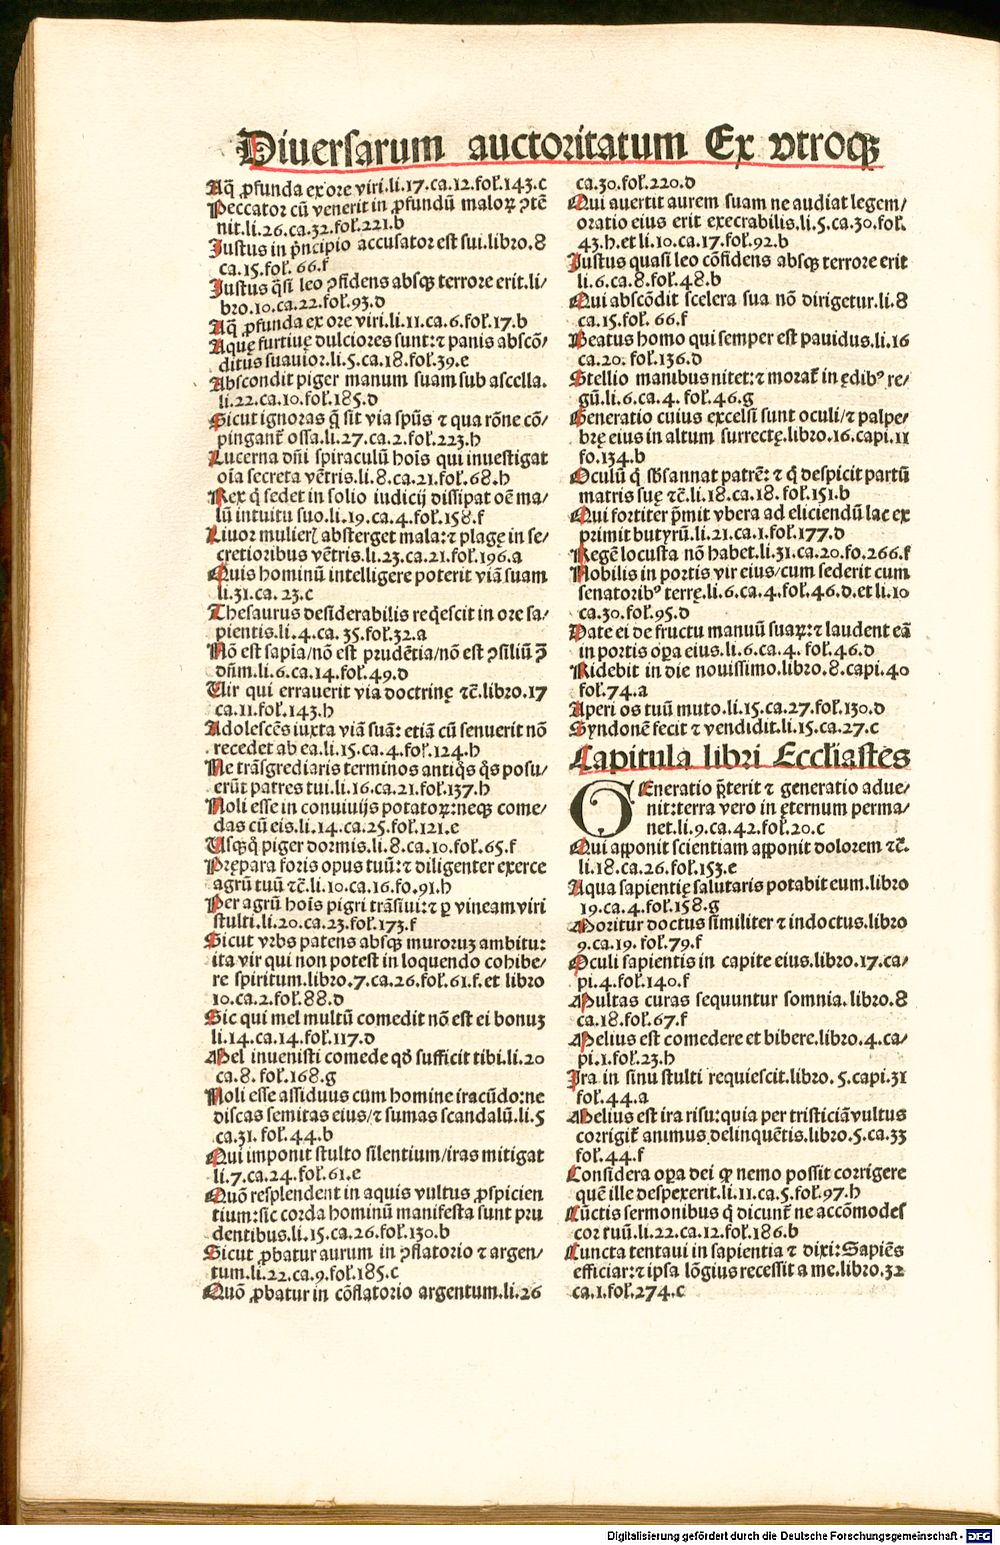 Diuersarum auctoritatum Ex vtroqꝫ
Aq̄ ꝓfunda ex ore viri.li.17.ca.12.fol.143.c
Peccator cū venerit in ꝓfundū maloꝝ ꝯtē
nit.li.26.ca.32.fol.221.b
Iustus in pͥncipio accusator est sui.libro.8
ca.15.fol. 66.f
Iustus q̄si leo ꝯfidens absqꝫ terrore erit.li/
bro.10.ca.22.fol.93.d
Aq̄ ꝓfunda ex ore viri.li.11.ca.6.fol.17.b
Aquę furtiuę dulciores sunt:⁊ panis abscō/
ditus suauior.li.5.ca.18.fol.39.e
Abscondit piger manum suam sub ascella.
li.22.ca.10.fol.185.d
Sicut ignoras q̄ sit via spūs ⁊ qua rōne cō/
pingant̄ ossa.li.27.ca.2.fol.223.h
Lucerna dn̄i spiraculū hoīs qui inuestigat
oīa secreta vētris.li.8.ca.21.fol.68.h
Rex qͥ sedet in solio iudicij dissipat oē ma/
lū intuitu suo.li.19.ca.4.fol.158.f
Liuor mulieꝝ absterget mala:⁊ plagę in se/
cretioribus vētris.li.23.ca.21.fol.196.a
Quis hominū intelligere poterit viā suam
li.31.ca. 23.c
Thesaurus desiderabilis reqͥescit in ore sa/
pientis.li.4.ca. 35.fol.32.a
Nō est sapia/nō est prudētia/nō est ꝯsiliū ꝯ̄
dn̄m.li.6.ca.14.fol.49.d
Uir qui errauerit via doctrinę ⁊c̄.libro.17
ca.11.fol.143.h
Adolescēs iuxta viā suā: etiā cū senuerit nō
recedet ab ea.li.15.ca.4.fol.124.h
Ne trāsgrediaris terminos antiqͦs qͦs posu/
erūt patres tui.li.16.ca.21.fol.137.h
Noli esse in conuiuijs potatoꝝ:neqꝫ come/
das cū eis.li.14.ca.25.fol.121.c
Usqꝫqͦ piger dormis.li.8.ca.10.fol.65.f
Prępara foris opus tuū:⁊ diligenter exerce
agrū tuū ⁊c̄.li.10.ca.16.fo.91.h
Per agrū hoīs pigri trāsiui:⁊ ꝑ vineam viri
stulti.li.20.ca.23.fol.173.f
Sicut vrbs patens absqꝫ muroruꝫ ambitu:
ita vir qui non potest in loquendo cohibe/
re spiritum.libro.7.ca.26.fol.61.f.et libro
10.ca.2.fol.88.d
Sic qui mel multū comedit nō est ei bonuꝫ
li.14.ca.14.fol.117.d
Mel inuenisti comede qđ sufficit tibi.li.20
ca.8. fol.168.g
Noli esse assiduus cum homine iracūdo:ne
discas semitas eius/⁊ sumas scandalū.li.5
ca.31. fol.44.b
Qui imponit stulto silentium/iras mitigat
li.7.ca.24.fol.61.e
Quō resplendent in aquis vultus ꝓspicien
tium:sic corda hominū manifesta sunt pru
dentibus.li.15.ca.26.fol.130.b
Sicut ꝓbatur aurum in ꝯflatorio ⁊ argen/
tum.li.22.ca.9.fol.185.c
Quō ꝓbatur in cōflatorio argentum.li.26
ca.30.fol.220.d
Qui auertit aurem suam ne audiat legem/
oratio eius erit execrabilis.li.5.ca.30.fol.
43.h.et li.10.ca.17.fol.92.b
Justus quasi leo cōfidens absqꝫ terrore erit
li.6.ca.8.fol.48.b
Qui abscōdit scelera sua nō dirigetur.li.8
ca.15.fol. 66.f
Beatus homo qui semper est pauidus.li.16
ca.20. fol.136.d
Stellio manibus nitet:⁊ morat̄ in ędibꝰ re/
gū.li.6.ca.4. fol.46.g
Generatio cuius excelsi sunt oculi/⁊ palpe/
brę eius in altum surrectę.libro.16.capi.11
fo.134.b
Oculū qͥ sb̄sannat patrē: ⁊ qͥ despicit partū
matris suę ⁊c̄.li.18.ca.18. fol.151.b
Qui fortiter p̄mit vbera ad eliciendū lac ex
primit butyrū.li.21.ca.1.fol.177.d
Regē locusta nō habet.li.31.ca.20.fo.266.f
Nobilis in portis vir eius/cum sederit cum
senatoribꝰ terrę.li.6.ca.4.fol.46.d.et li.10
ca.30.fol.95.d
Date ei de fructu manuū suaꝝ:⁊ laudent eā
in portis oꝑa eius.li.6.ca.4. fol.46.d
Ridebit in die nouissimo.libro.8.capi.40
fol.74.a
Aperi os tuū muto.li.15.ca.27.fol.130.d
Syndonē fecit ⁊ vendidit.li.15.ca.27.c
Capitula libri Eccliastes
GEneratio p̄terit ⁊ generatio adue/
nit:terra vero in ęternum perma/
net.li.9.ca.42.fol.20.c
Qui apponit scientiam apponit dolorem ⁊c̄.
li.18.ca.26.fol.153.e
Aqua sapientię salutaris potabit eum.libro
19.ca.4.fol.158.g
Moritur doctus similiter ⁊ indoctus.libro
9.ca.19. fol.79.f
Oculi sapientis in capite eius.libro.17.ca/
pi.4.fol.140.f
Multas curas sequuntur somnia.libro.8
ca.18.fol.67.f
Melius est comedere et bibere.libro.4.ca/
pi.1.fol.23.h
Ira in sinu stulti requiescit.libro. 5.capi.31
fol.44.a
Melius est ira risu:quia per tristiciā vultus
corrigit̄ animus delinquētis.libro.5.ca.33
fol.44.f
Considera oꝑa dei ꝙ nemo possit corrigere
quē ille despexerit.li.11.ca.5.fol.97.h
Cūctis sermonibus qͥ dicunt̄ ne accōmodes
cor tuū.li.22.ca.12.fol.186.b
Cuncta tentaui in sapientia ⁊ dixi:Sapiēs
efficiar:⁊ ipsa lōgius recessit a me.libro.32
ca.1.fol.274.c
Digitalisierung gefördert durch die Deutsche Forschungsgemeinschaft - DFG